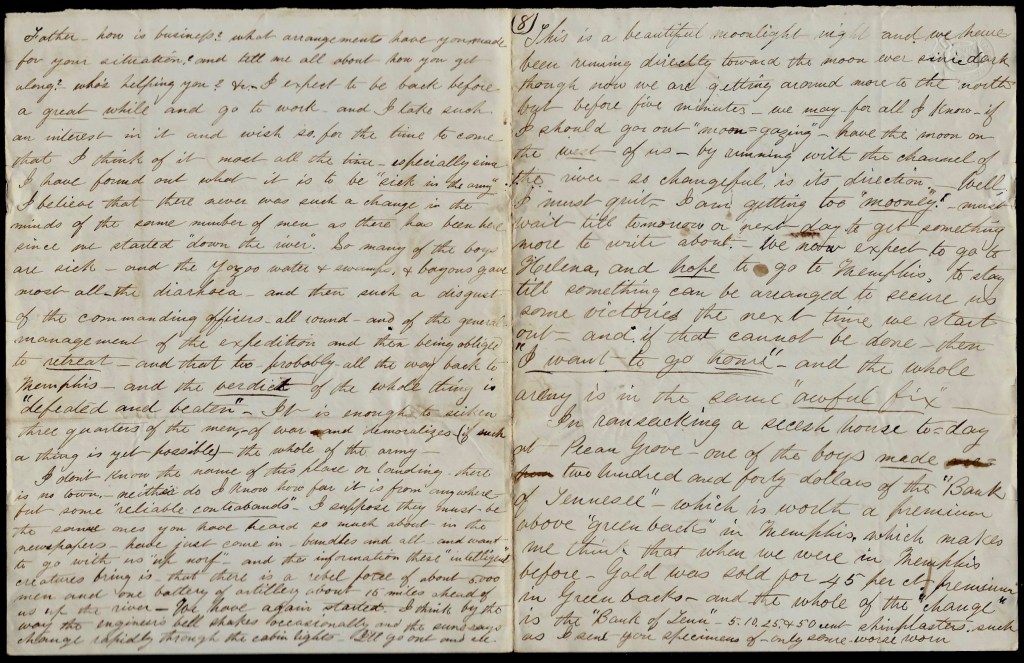 Father - how is business? what arrangements have you made
for your situation? and tell me all about how you get
along? who's helping you? &c - I expect to be back before
a great while and go to work and I take such
an interest in it and wish so for the time to come
that I think of it most all the time - especially since
I have found out what it is to be "sick in the army"
I believe that there never was such a change in the
minds of the same number of men as there has been here
since we started "down the river". So many of the boys
are sick - and the Yazoo water & swamps, & bayous gave
most all the diarhoea - and then such a disgust
of the commanding officers - all round - and of the general
management of the expedition and then being obliged
to retreat - and that too probably all the way back to
Memphis - and the verdict of the whole thing is
"defeated and beaten" - It is enough to sicken
three quarters of the men, of war and demoralizes (if such
a thing is yet possible) - the whole of the army -
I don't know the name of this place or landing - there
is no town, - neither do I know how far it is from anywhere
but some "reliable contrabands" - I suppose they must be
the same ones you have heard so much about in the
newspapers - have just come in - bundles and all - and want
to go with us "up norf" - and the information these "intelligent"
creatures bring is - that there is a rebel force of about 5000
men and one battery of artillery about 15 miles ahead of
us up the river - We have again started. I think by the
way the engineer's bell shakes occasionally and the sun's rays
change rapidly through the cabin lights - I'll go out and see
(8)
This is a beautiful moonlight night and we have
been running directly toward the moon ever since dark
though now we are getting around more to the north
but before five minutes - we may for all I know - if
I should go out "moon=gazing" - have the moon on
the west of us - by running with the channel of
the river - so changeful is its direction - Well
I must quit - I am getting too "moony" - must
wait till tomorrow or next day to get something
more to write about - We now expect to go to
Helena, and hope to go to Memphis, to stay
till something can be arranged to secure us
some victories the next time we start
out - and if that cannot be done - then
"I want to go home" - and the whole
army is in the same "awful fix" -
In ransacking a secesh house to=day
at Pecan Grove - one of the boys made
two hundred and forty dollars of the "Bank
of Tennesee" - which is worth a premium
above "greenbacks" in Memphis, which makes
me think that when we were in Memphis
before - Gold was sold for 45 per ct premium
in Greenbacks - and the whole of the "change"
is the "Bank of Tenn" - 5.10.25.&50 cent shinplasters such
as I sent you specimens of - only some worse worn